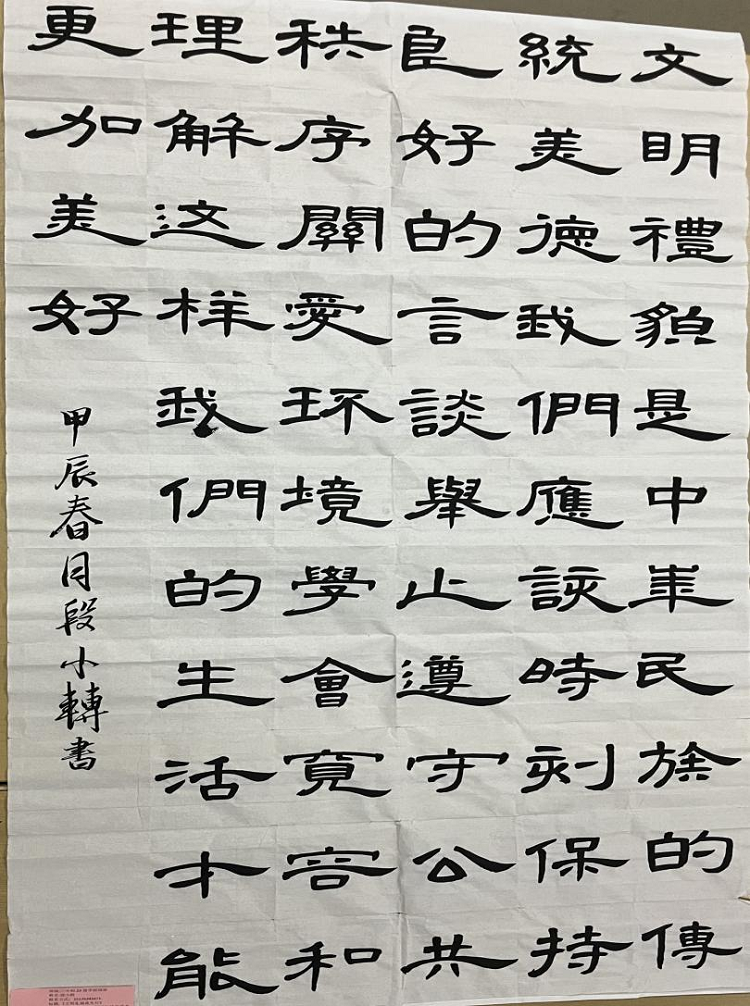 文明禮貌是中華民族的傳
統美德我們應該時刻保持
良好的言談舉止遵守公共
秩序關愛环境學會寬容和
理解这样我們的生活才能
更加美好
甲辰春月段小轉書